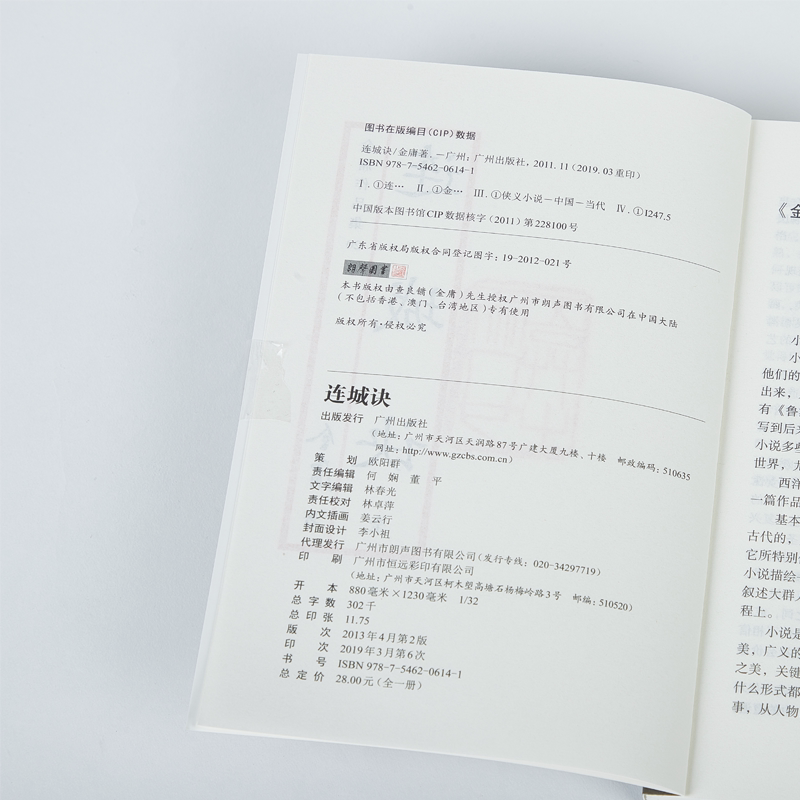 图书在版编目(CIP)数据
连城诀/金庸著.—广州：广州出版社，2011.11（2019.03重印）
ISBN 978-7-5462-0614-1
Ⅰ.①连… Ⅱ.①金… Ⅲ.①侠义小说－中国－当代 Ⅳ.①I247.5
中国版本图书馆CIP数据核字（2011）第228100号
广东省版权局版权合同登记图字：19-2012-021号
朗声图书
本书版权由查良镛（金庸）先生授权广州市朗声图书有限公司在中国大陆
（不包括香港、澳门、台湾地区）专有使用
版权所有·侵权必究
连城诀
出版发行 广州出版社
（地址：广州市天河区天润路87号广建大厦九楼、十楼 邮政编码：510635
网址：http://www.gzcbs.com.cn）
策 划 欧阳群
责任编辑 何 娴 董 平
文字编辑 林春光
责任校对 林卓萍
内文插画 姜云行
封面设计 李小祖
代理发行 广州市朗声图书有限公司（发行专线：020-34297719）
印 刷 广州市恒远彩印有限公司
（地址：广州市天河区柯木塱高塘石杨梅岭路3号 邮编：510520）
开 本 880毫米×1230毫米 1/32
总 字 数 302千
总 印 张 11.75
版 次 2013年4月第2版
印 次 2019年3月第6次
书 号 ISBN 978-7-5462-0614-1
总 定 价 28.00元（全一册）
《金
小
小
他们的
出来，
有《鲁
写到后来
小说多些
世界，尤
西洋
一篇作品
基本
古代的，
它所特别
小说描绘
叙述大群人
程上。
小说是
美，广义的
之美，关键
什么形式都
事，从人物